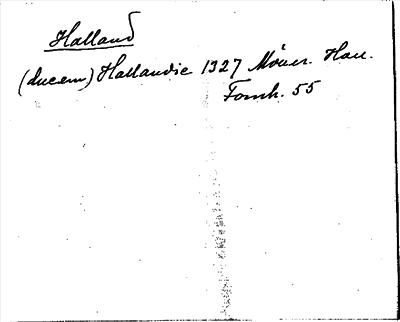 Halland
(ducem) Hallandie 1327 Möller. Hall.
Fornh. 55